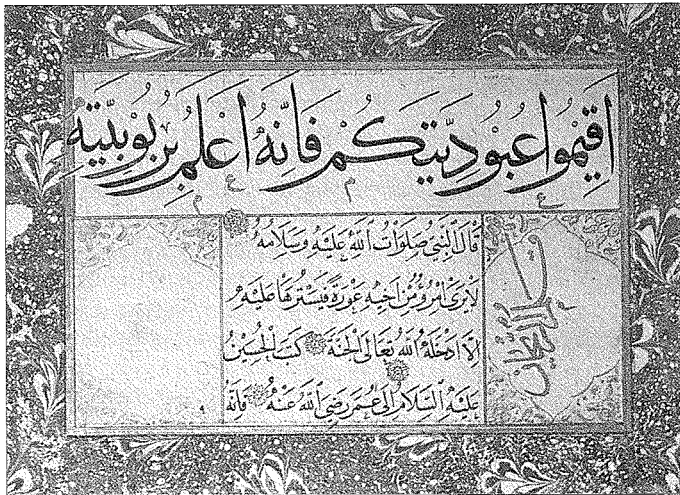 اَقِيْمُوا عُبُودِيَّتِكُمْ فَاِنَّهُ اَعْلَمُ بِرُبُوبِيَّتِهِ
قَالَ النَّبِيُّ صَلَوَاتُ اللهِ عَلَيْهِ وَسَلَامُهُ
لَا يَرَى امْرُؤٌ مِنْ اَخِيهِ عَوْرَةً فَيَسْتُرُهَا عَلَيْهِ
اِلَّا اَدْخَلَهُ اللهُ تَعَالَى الْجَنَّةَ كَتَبَ الْحُسَيْنُ
عَلَيْهِ السَّلَامُ اِلَى عُمَرَ رَضِيَ اللهُ عَنْهُ فَاِنَّهُ